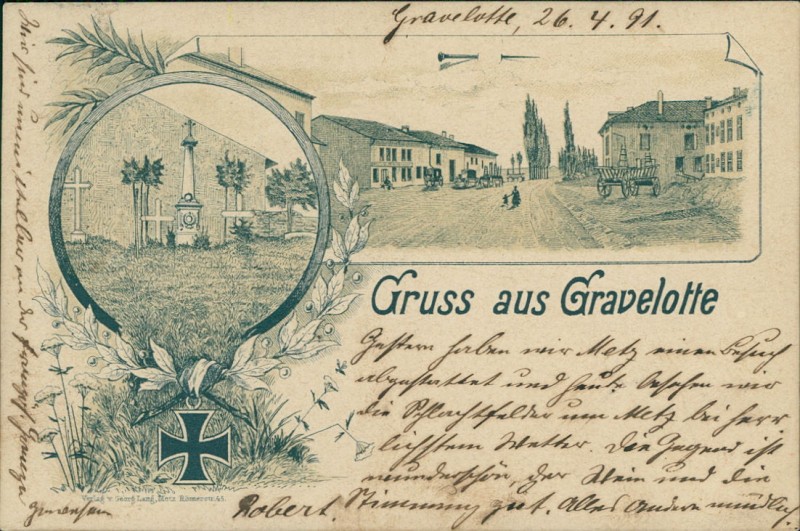 Gravelotte, 26. 4. 91.
Gruss aus Gravelotte
Gestern haben wir Metz einen Besuch
abgestattet und heute besehen wir
die Schlachtfelder um Metz bei herr
lichstem Wetter. Die Gegend ist
wunderschön, der Wein und die
Stimmung gut. Alles Andere mündlich
Robert.
Wir sind unmittelbar an der Grenze
gewesen
Verlag v. Georg Lang, Metz Römerstr. 45.